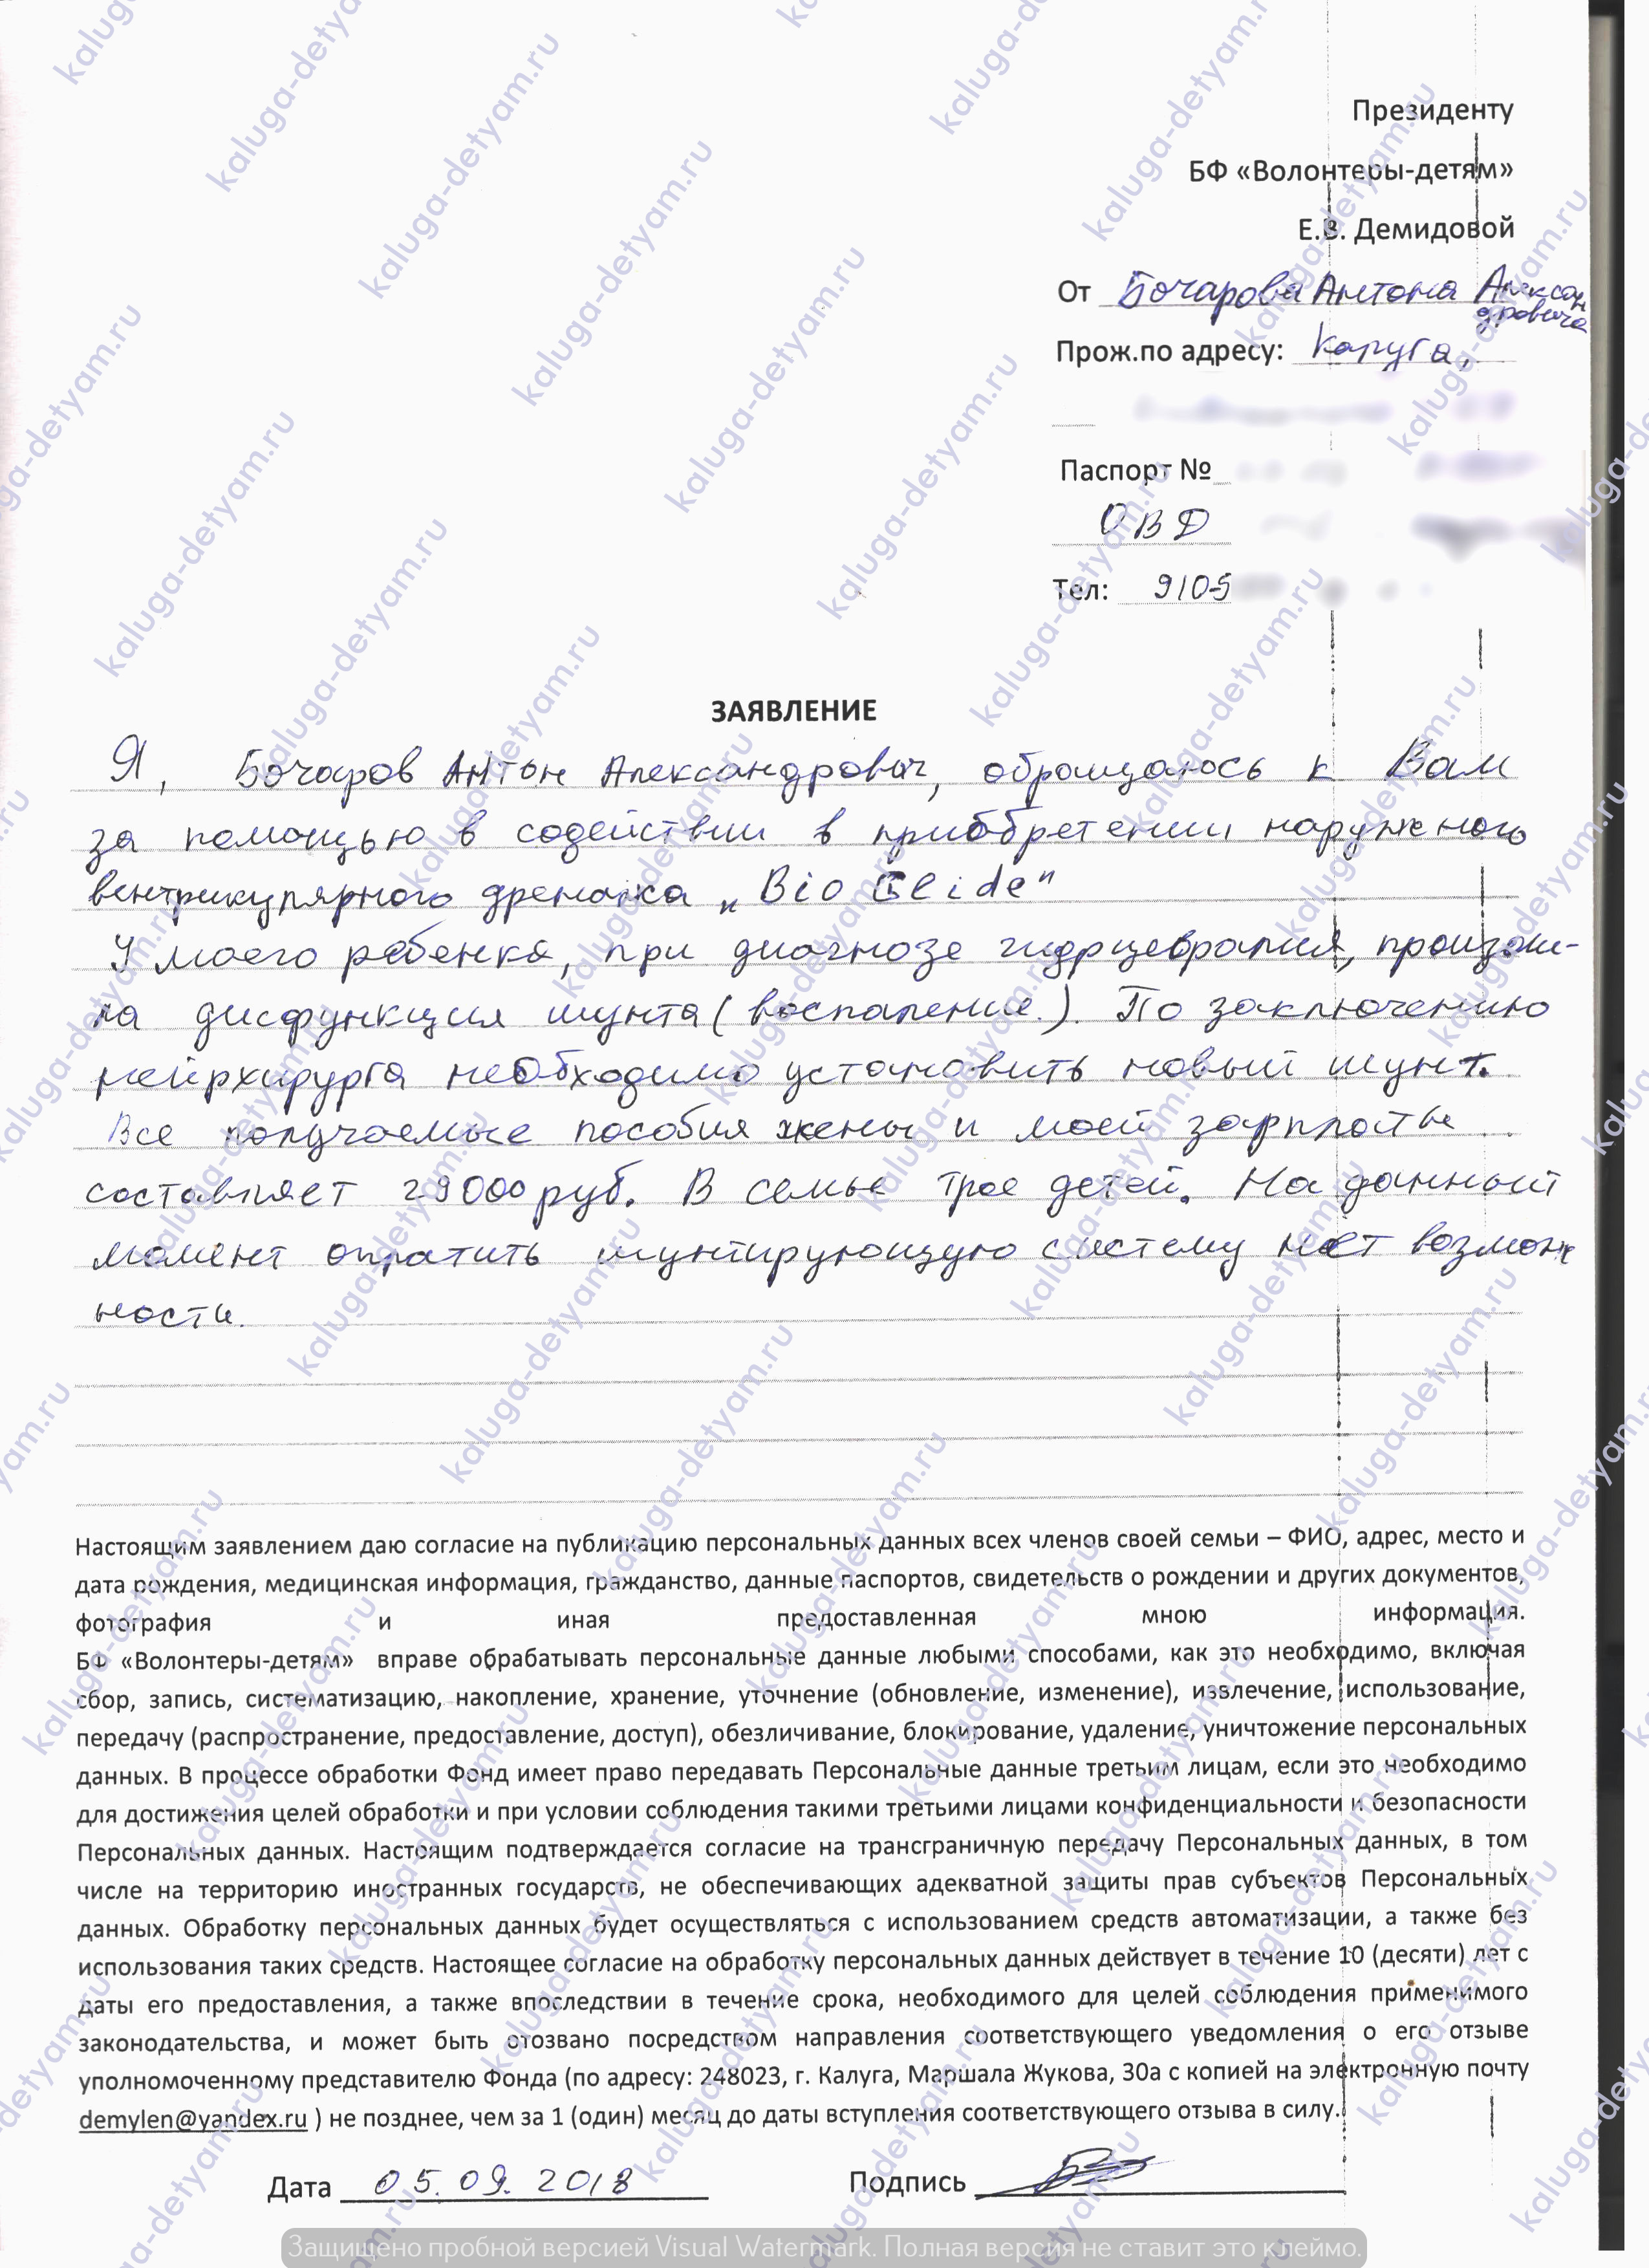 Президенту
БФ «Волонтеры-детям»
Е.В. Демидовой
От Бочарова Антона Александровича
Прож.по адресу: Калуга,
Паспорт №
ОВД
Тел: 9105
ЗАЯВЛЕНИЕ
Я, Бочаров Антон Александрович, обращаюсь к Вам
за помощью в содействии в приобретении наружного
вентрикулярного дренажа „Bio Glide"
У моего ребенка, при диагнозе гидрцевралия, произош-
ла дисфункция шунта (воспаление.). По заключению
нейрхирурга необходимо установить новый шунт.
Все получаемые пособия жены и моей зарплаты
составляет 29000 руб. В семье трое детей. На данный
момент оплатить шунтирующую систему нет возмож
ности.
Настоящим заявлением даю согласие на публикацию персональных данных всех членов своей семьи – ФИО, адрес, место и
дата рождения, медицинская информация, гражданство, данные паспортов, свидетельств о рождении и других документов,
фотография и иная предоставленная мною информация.
БФ «Волонтеры-детям» вправе обрабатывать персональные данные любыми способами, как это необходимо, включая
сбор, запись, систематизацию, накопление, хранение, уточнение (обновление, изменение), извлечение, использование,
передачу (распространение, предоставление, доступ), обезличивание, блокирование, удаление, уничтожение персональных
данных. В процессе обработки Фонд имеет право передавать Персональные данные третьим лицам, если это необходимо
для достижения целей обработки и при условии соблюдения такими третьими лицами конфиденциальности и безопасности
Персональных данных. Настоящим подтверждается согласие на трансграничную передачу Персональных данных, в том
числе на территорию иностранных государств, не обеспечивающих адекватной защиты прав субъектов Персональных
данных. Обработку персональных данных будет осуществляться с использованием средств автоматизации, а также без
использования таких средств. Настоящее согласие на обработку персональных данных действует в течение 10 (десяти) лет с
даты его предоставления, а также впоследствии в течение срока, необходимого для целей соблюдения применимого
законодательства, и может быть отозвано посредством направления соответствующего уведомления о его отзыве
уполномоченному представителю Фонда (по адресу: 248023, г. Калуга, Маршала Жукова, 30а с копией на электронную почту
demylen@yandex.ru ) не позднее, чем за 1 (один) месяц до даты вступления соответствующего отзыва в силу.
Дата 05.09.2018 Подпись
Защищено пробной версией Visual Watermark. Полная версия не ставит это клеймо.
kaluga-detyam.ru